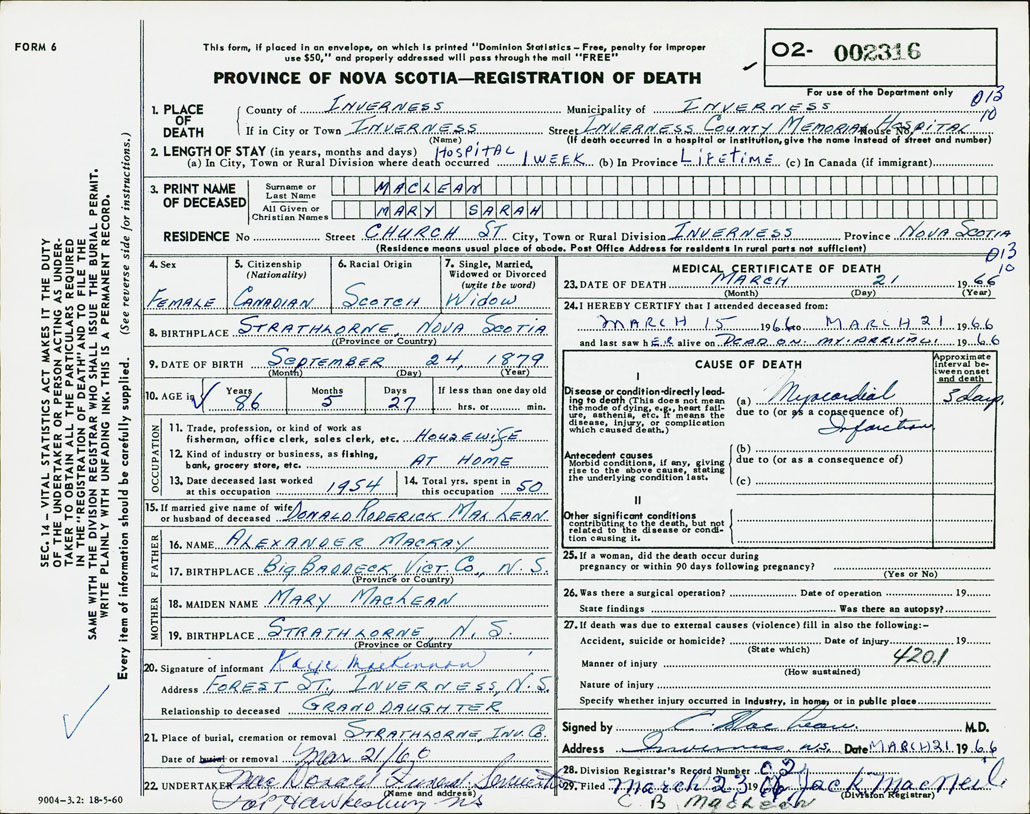 FORM 6
This form, if placed in an envelope, on which is printed "Dominion Statistics – Free, penalty for improper
use $50," and properly addressed will pass through the mail "FREE"
PROVINCE OF NOVA SCOTIA—REGISTRATION OF DEATH
O2- 002316
For use of the Department only
013
10
1. PLACE OF DEATH
County of INVERNESS Municipality of INVERNESS
If in City or Town INVERNESS Street INVERNESS COUNTY MEMORIAL HOSPITAL House No.
(Name) (If death occurred in a hospital or institution, give the name instead of street and number)
2. LENGTH OF STAY (in years, months and days) HOSPITAL
(a) In City, Town or Rural Division where death occurred 1 WEEK (b) In Province LIFETIME (c) In Canada (if immigrant)
3. PRINT NAME OF DECEASED
Surname or Last Name MACLEAN
All Given or Christian Names MARY SARAH
RESIDENCE No Street CHURCH ST City, Town or Rural Division INVERNESS Province NOVA SCOTIA
(Residence means usual place of abode. Post Office Address for residents in rural parts not sufficient)
013
10
4. Sex FEMALE
5. Citizenship (Nationality) CANADIAN
6. Racial Origin SCOTCH
7. Single, Married, Widowed or Divorced (write the word) WIDOW
8. BIRTHPLACE STRATHLORNE, NOVA SCOTIA
(Province or Country)
9. DATE OF BIRTH SEPTEMBER 24, 1879
(Month) (Day) (Year)
10. AGE in Years 86 Months 5 Days 27 If less than one day old hrs. or min.
OCCUPATION
11. Trade, profession, or kind of work as
fisherman, office clerk, sales clerk, etc. HOUSEWIFE
12. Kind of industry or business, as fishing,
bank, grocery store, etc. AT HOME
13. Date deceased last worked at this occupation 1954
14. Total yrs. spent in this occupation 50
15. If married give name of wife or husband of deceased DONALD RODERICK MACLEAN
FATHER
16. NAME ALEXANDER MACKAY
17. BIRTHPLACE BIG BADDECK, VICT. CO., N.S.
(Province or Country)
MOTHER
18. MAIDEN NAME MARY MACLEAN
19. BIRTHPLACE STRATHLORNE, N.S.
(Province or Country)
20. Signature of informant Kaye MacKinnon
Address FOREST ST., INVERNESS, N.S.
Relationship to deceased GRANDDAUGHTER
21. Place of burial, cremation or removal STRATHLORNE, INV. C.
Date of burial or removal Mar 21/66
22. UNDERTAKER MacDonald Funeral Service
(Name and address)
Port Hawkesbury NS
9004–3.2: 18-5-60
MEDICAL CERTIFICATE OF DEATH
23. DATE OF DEATH MARCH 21 1966
(Month) (Day) (Year)
24. I HEREBY CERTIFY that I attended deceased from:
MARCH 15 1966 to MARCH 21 1966
and last saw hER alive on DEAD ON MY ARRIVAL! 1966
CAUSE OF DEATH
Approximate interval between onset and death
I
Disease or condition directly leading to death (This does not mean
the mode of dying, e.g., heart failure, asthenia, etc. It means the
disease, injury, or complication which caused death.)
(a) Myocardial 3 days
due to (or as a consequence of)
Infarction
Antecedent causes
Morbid conditions, if any, giving
rise to the above cause, stating
the underlying condition last.
(b)
due to (or as a consequence of)
(c)
II
Other significant conditions
contributing to the death, but not
related to the disease or condition causing it.
25. If a woman, did the death occur during
pregnancy or within 90 days following pregnancy?
(Yes or No)
26. Was there a surgical operation? Date of operation 19
State findings Was there an autopsy?
27. If death was due to external causes (violence) fill in also the following:-
Accident, suicide or homicide? Date of injury 19
(State which)
Manner of injury 420.1
(How sustained)
Nature of injury
Specify whether injury occurred in industry, in home, or in public place
Signed by C. MacLean M.D.
Address Inverness N.S. Date MARCH 21 1966
28. Division Registrar's Record Number
29. Filed March 23 1966 Jack MacNeil
(Division Registrar)
C B MacLean
SEC. 14 – VITAL STATISTICS ACT MAKES IT THE DUTY
OF THE UNDERTAKER OR PERSON ACTING AS UNDER-
TAKER TO OBTAIN ALL THE PARTICULARS REQUIRED
IN THE "REGISTRATION OF DEATH" AND TO FILE THE
SAME WITH THE DIVISION REGISTRAR WHO SHALL ISSUE THE BURIAL PERMIT.
WRITE PLAINLY WITH UNFADING INK. THIS IS A PERMANENT RECORD.
Every item of information should be carefully supplied. (See reverse side for instructions.)